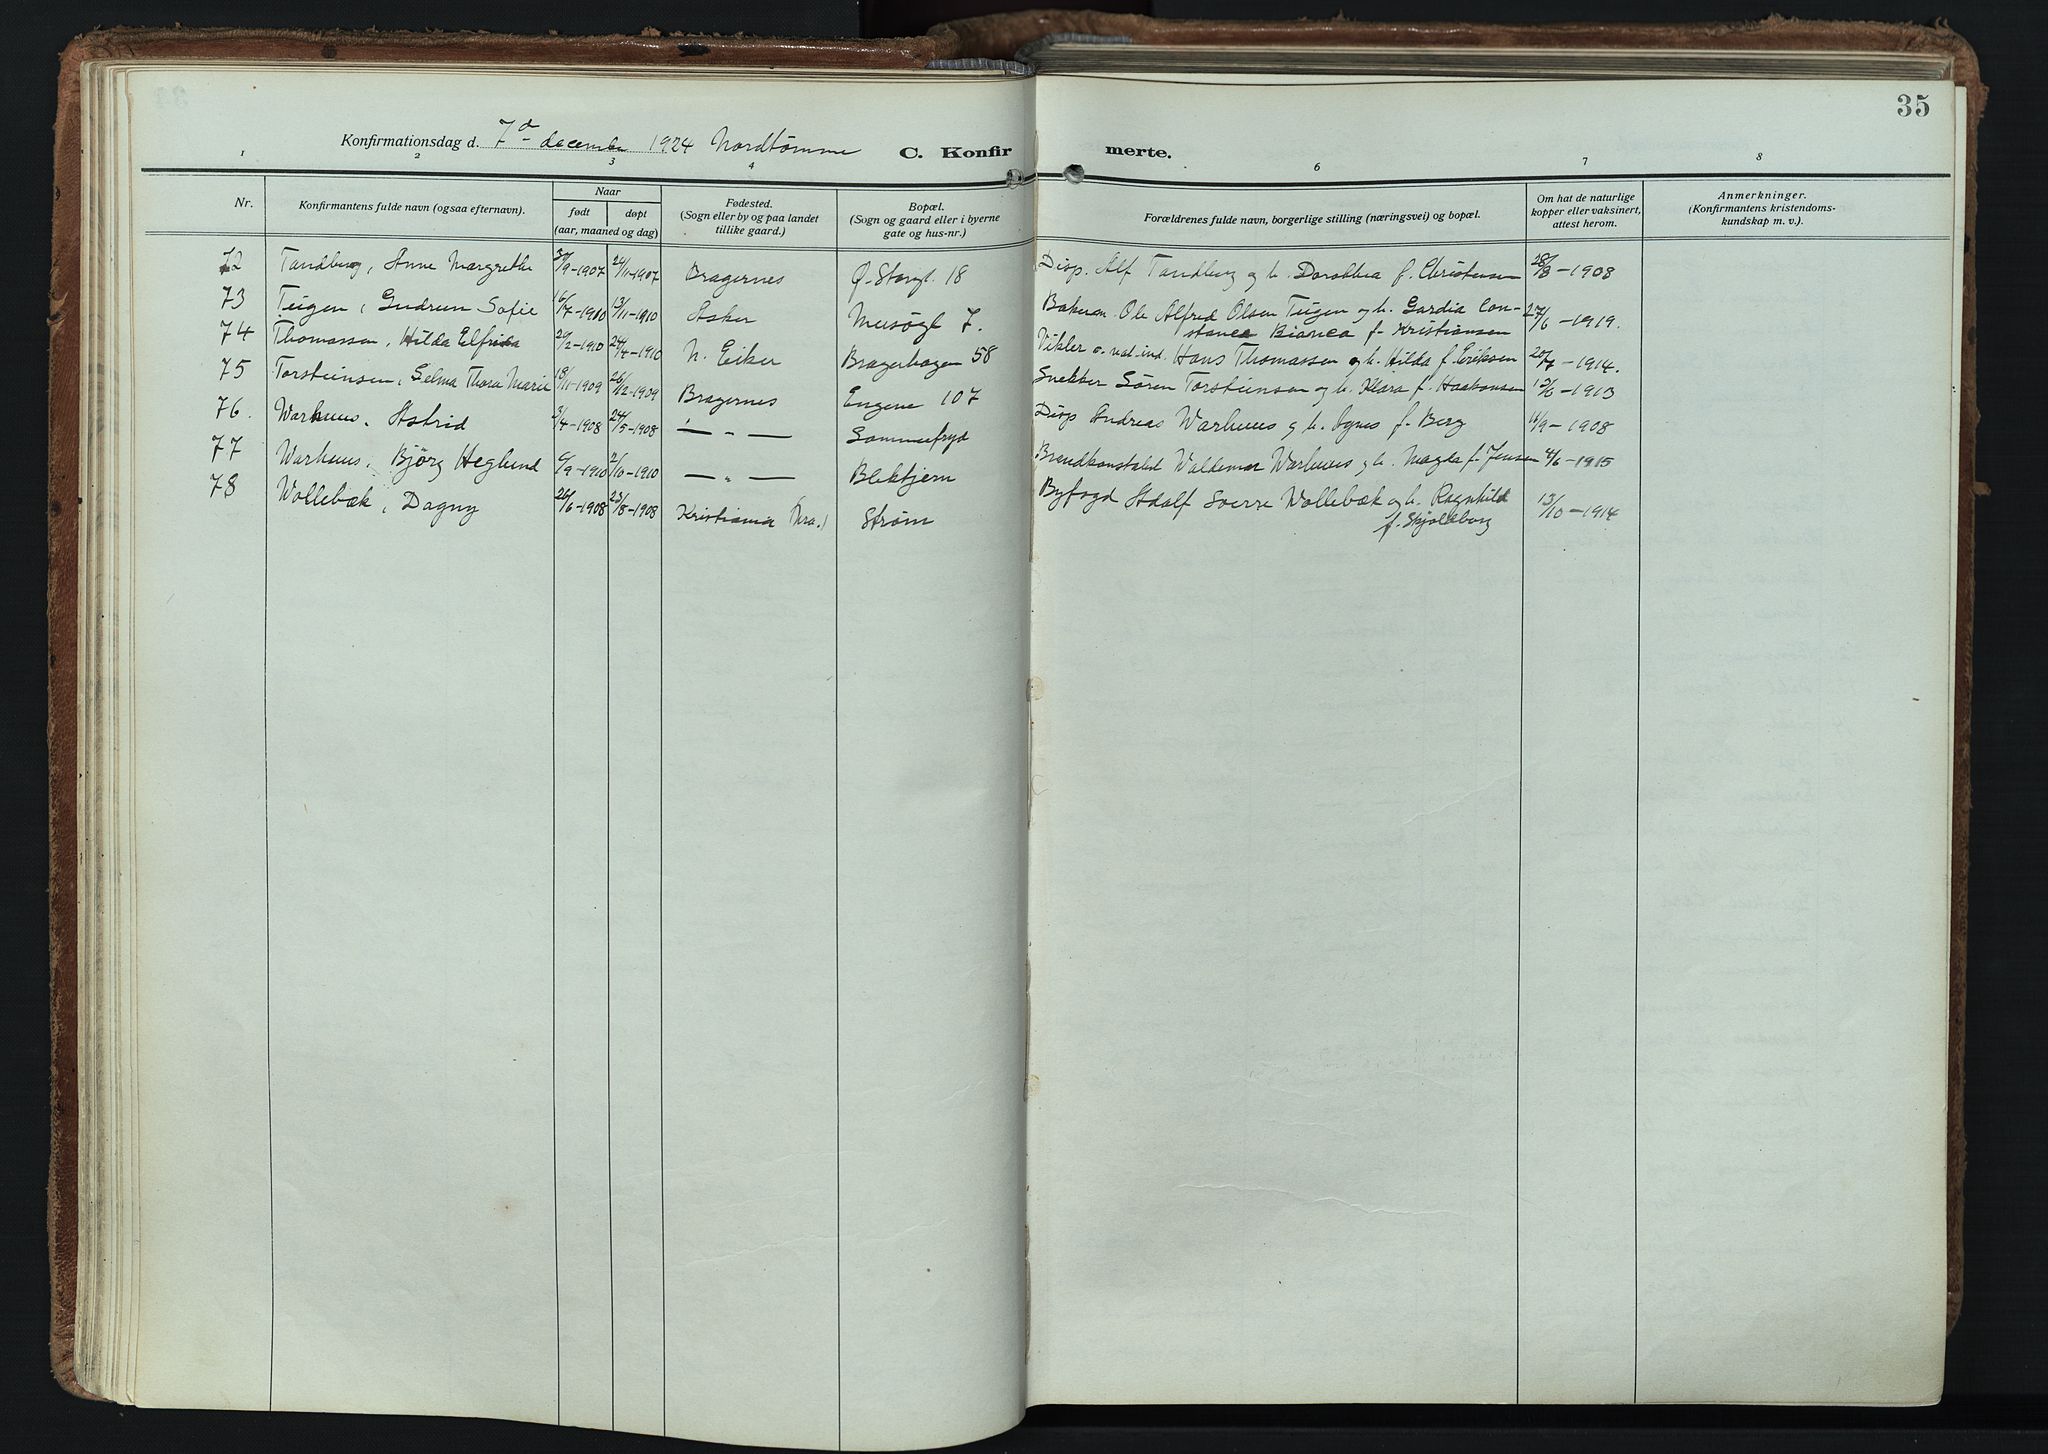 35
Konfirmationsdag d. 7de december 1924 Nordtømme C. Konfirmerte.
1 2 3 4 5 6 7 8
Nr. Konfirmantens fulde navn (ogsaa efternavn). Naar født døpt (aar, maaned og dag) Fødested. (Sogn eller by og paa landet tillike gaard.) Bopæl. (Sogn og gaard eller i byerne gate og hus-nr.) Forældrenes fulde navn, borgerlige stilling (næringsvei) og bopæl. Om hat de naturlige kopper eller vaksinert, attest herom. Anmerkninger. (Konfirmantens kristendomskundskap m. v.).
72 Tandberg, Anne Margrethe 30/9-1907 24/11-1907 Bragernes Ø. Storgt. 18 Disp. Alf Tandberg og h. Dorothea f. Christensen 28/8-1908
73 Teigen, Gudrun Sofie 16/7-1910 13/11-1910 Asker Musøgt 7. Bakerm. Ole Alfred Olsen Teigen og h. Gardia Constance Bianca f. Kristiansen 27/6-1919.
74 Thomassen, Hilda Elfrida 20/2-1910 24/4-1910 N. Eiker Bragerhagen 58 Vikler v. nat. ind. Hans Thomassen og h. Hilda f. Eriksen 20/7-1914.
75 Torsteinsen, Selma Thora Marie 18/11-1909 26/12-1909 Bragernes Engene 107 Snekker Søren Torsteinsen og h. Klara f. Haakonsen 13/6-1913
76. Warhuus, Astrid 3/4-1908 24/5-1908 — „ — Sommerfryd Disp Andreas Warhuus og h. Agnes f. Berg 11/9-1908
77 Warhuus, Bjørg Heglund 6/9-1910 2/10-1910 — „ — Blektjern Brandkonstabel Waldemar Warhuus og h. Magda f. Jensen 4/6-1915
78 Wollebæk, Dagny 26/6-1908 23/8-1908 Kristiania (Ura.) Strøm Byfogd Adolf Sverre Wollebæk og h. Ragnhild f. Skjoldborg 13/10-1914